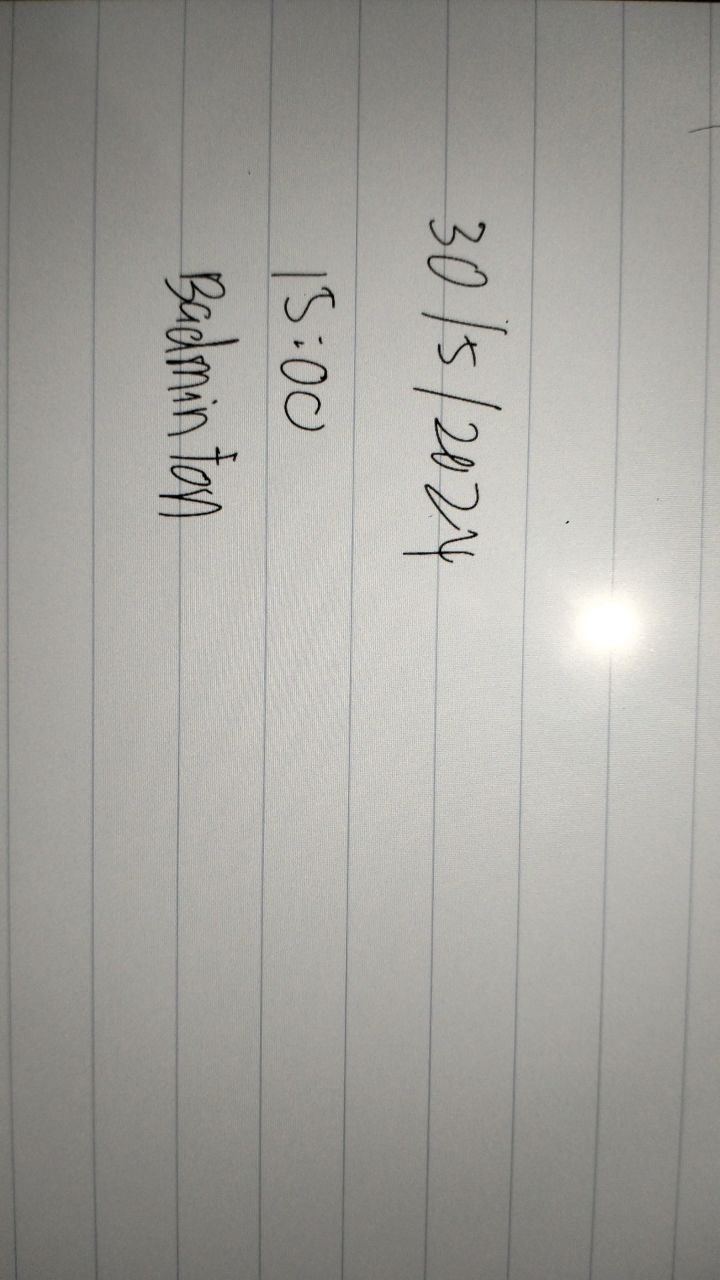 30/5/2024
15:00
Badminton